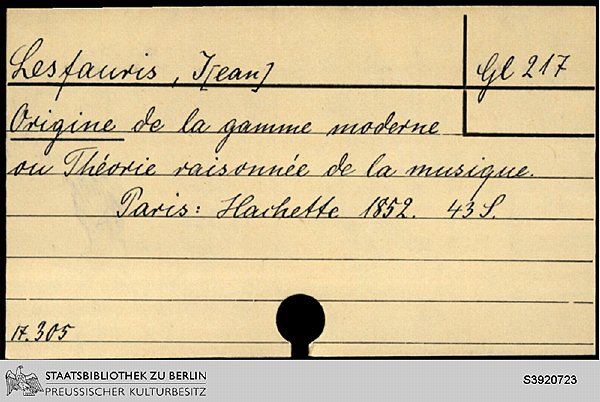 Lesfauris, J[ean]
Gl 217
Origine de la gamme moderne
ou Théorie raisonnée de la musique.
Paris: Hachette 1852. 43 S.
17.305
STAATSBIBLIOTHEK ZU BERLIN
PREUSSISCHER KULTURBESITZ
S3920723